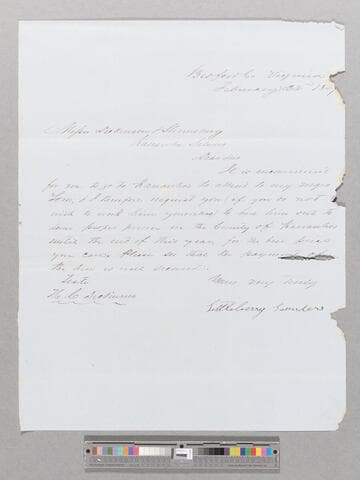 Bedford Co Virginia
February 24th 18
Messrs Dickinson & Shrewsbury
Kanawha Salines
Dear Sirs
It is inconvenient
for me to go to Kanawha to attend to my negro
, & I therefore request you, if you do not
wish to work him yourselves to hire him out to
some proper person in the County of Kanawha
until the end of this year, for the best price
you can. Please see that the payment of
the hire is well secured.
Teste Yours very truly
H. C. Dickinson
Littleberry Saunders